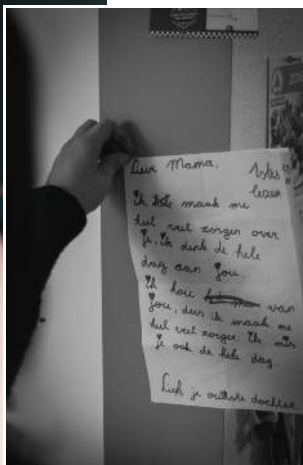 Lieve Mama,
lezen
Ik maak me
heel veel zorgen over
je, ik denk de hele
dag aan jou.
Ik hou van
jou, dus ik maak me
heel veel zorgen. Ik mis
je ook de hele dag.
Liefs je oudste dochter